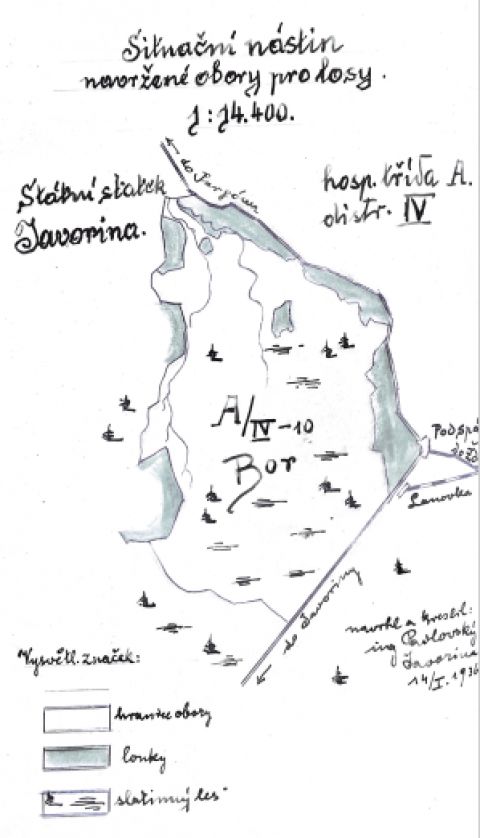 Situační nástin
navržené obory pro losy.
1:14.400.
Státní statek
Javorina.
hosp. třída A.
distr. IV
do Jurgówa
A/IV-10
Bor
Podspá
Lanovka
do Javoriny
navrhl a kreslil:
ing Pavlovský
Javorina
14/I. 1936
Vysvětl. značek:
hranice obory
louky
slatinný les